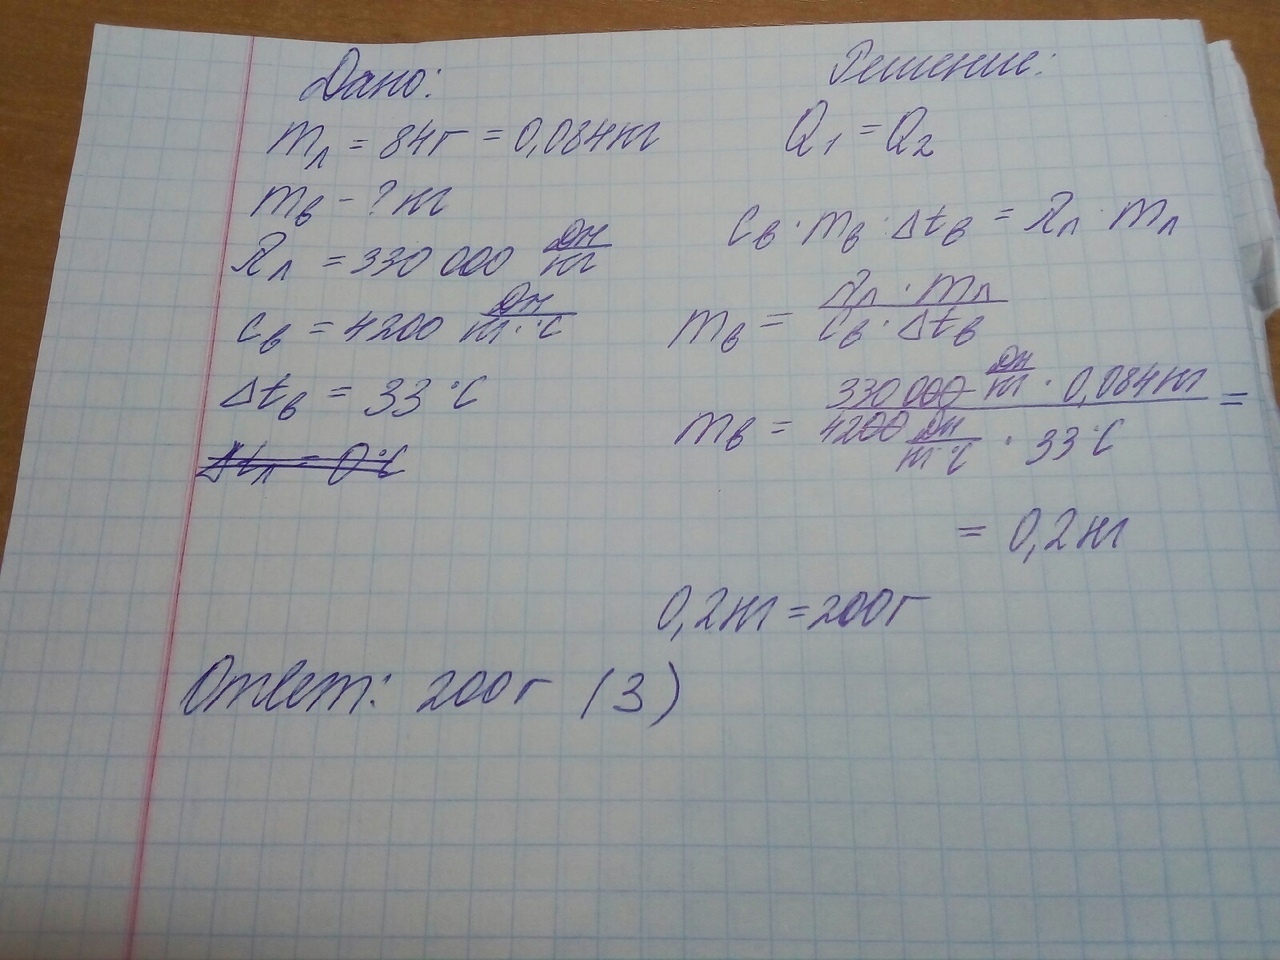 Дано:
m_л = 84г = 0,084кг
m_в - ? кг
λ_л = 330 000 Дж/кг
c_в = 4200 Дж/кг·°C
Δt_в = 33 °C
Δt_л = 0°C
Решение:
Q₁ = Q₂
c_в · m_в · Δt_в = λ_л · m_л
m_в = λ_л · m_л / c_в · Δt_в
m_в = 330 000 Дж/кг · 0,084кг / 4200 Дж/кг·°C · 33°C =
= 0,2кг
0,2кг = 200г
Ответ: 200г (3)